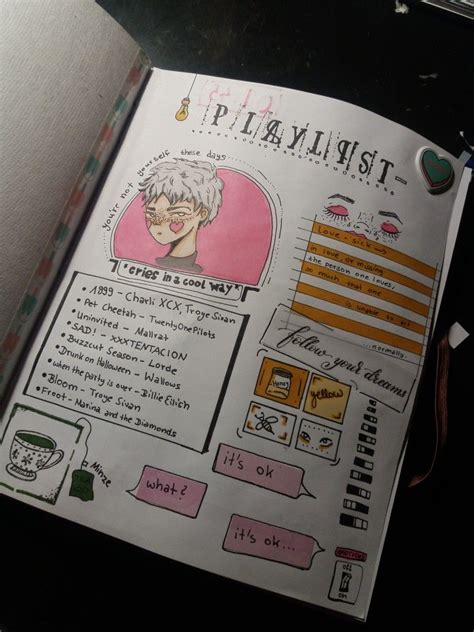 PLAYLIST
you're not yourself these days
*cries in a cool way*
• 1999 - Charli XCX, Troye Sivan
• Pet Cheetah - TwentyOnePilots
• Uninvited - Mallrat
• SAD! - XXXTENTACION
• Buzzcut Season - Lorde
• Drunk on Halloween - Wallows
• when the party is over - Billie Eilish
• Bloom - Troye Sivan
• Froot - Marina and the Diamonds
Love - sick
in love, or missing
the person one loves,
so much that one
is unable to act
...normally.
follow your dreams
Honey
yellow
Minze
what?
it's ok
it's ok...
off
on